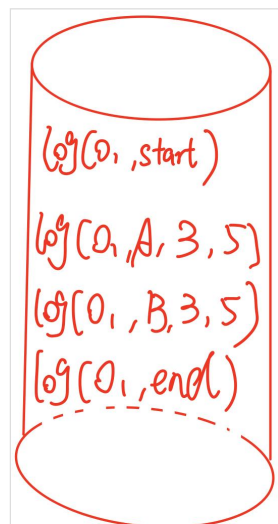 log(O₁,start)
log(O₁,A,3,5)
log(O₁,B,3,5)
log(O₁,end)